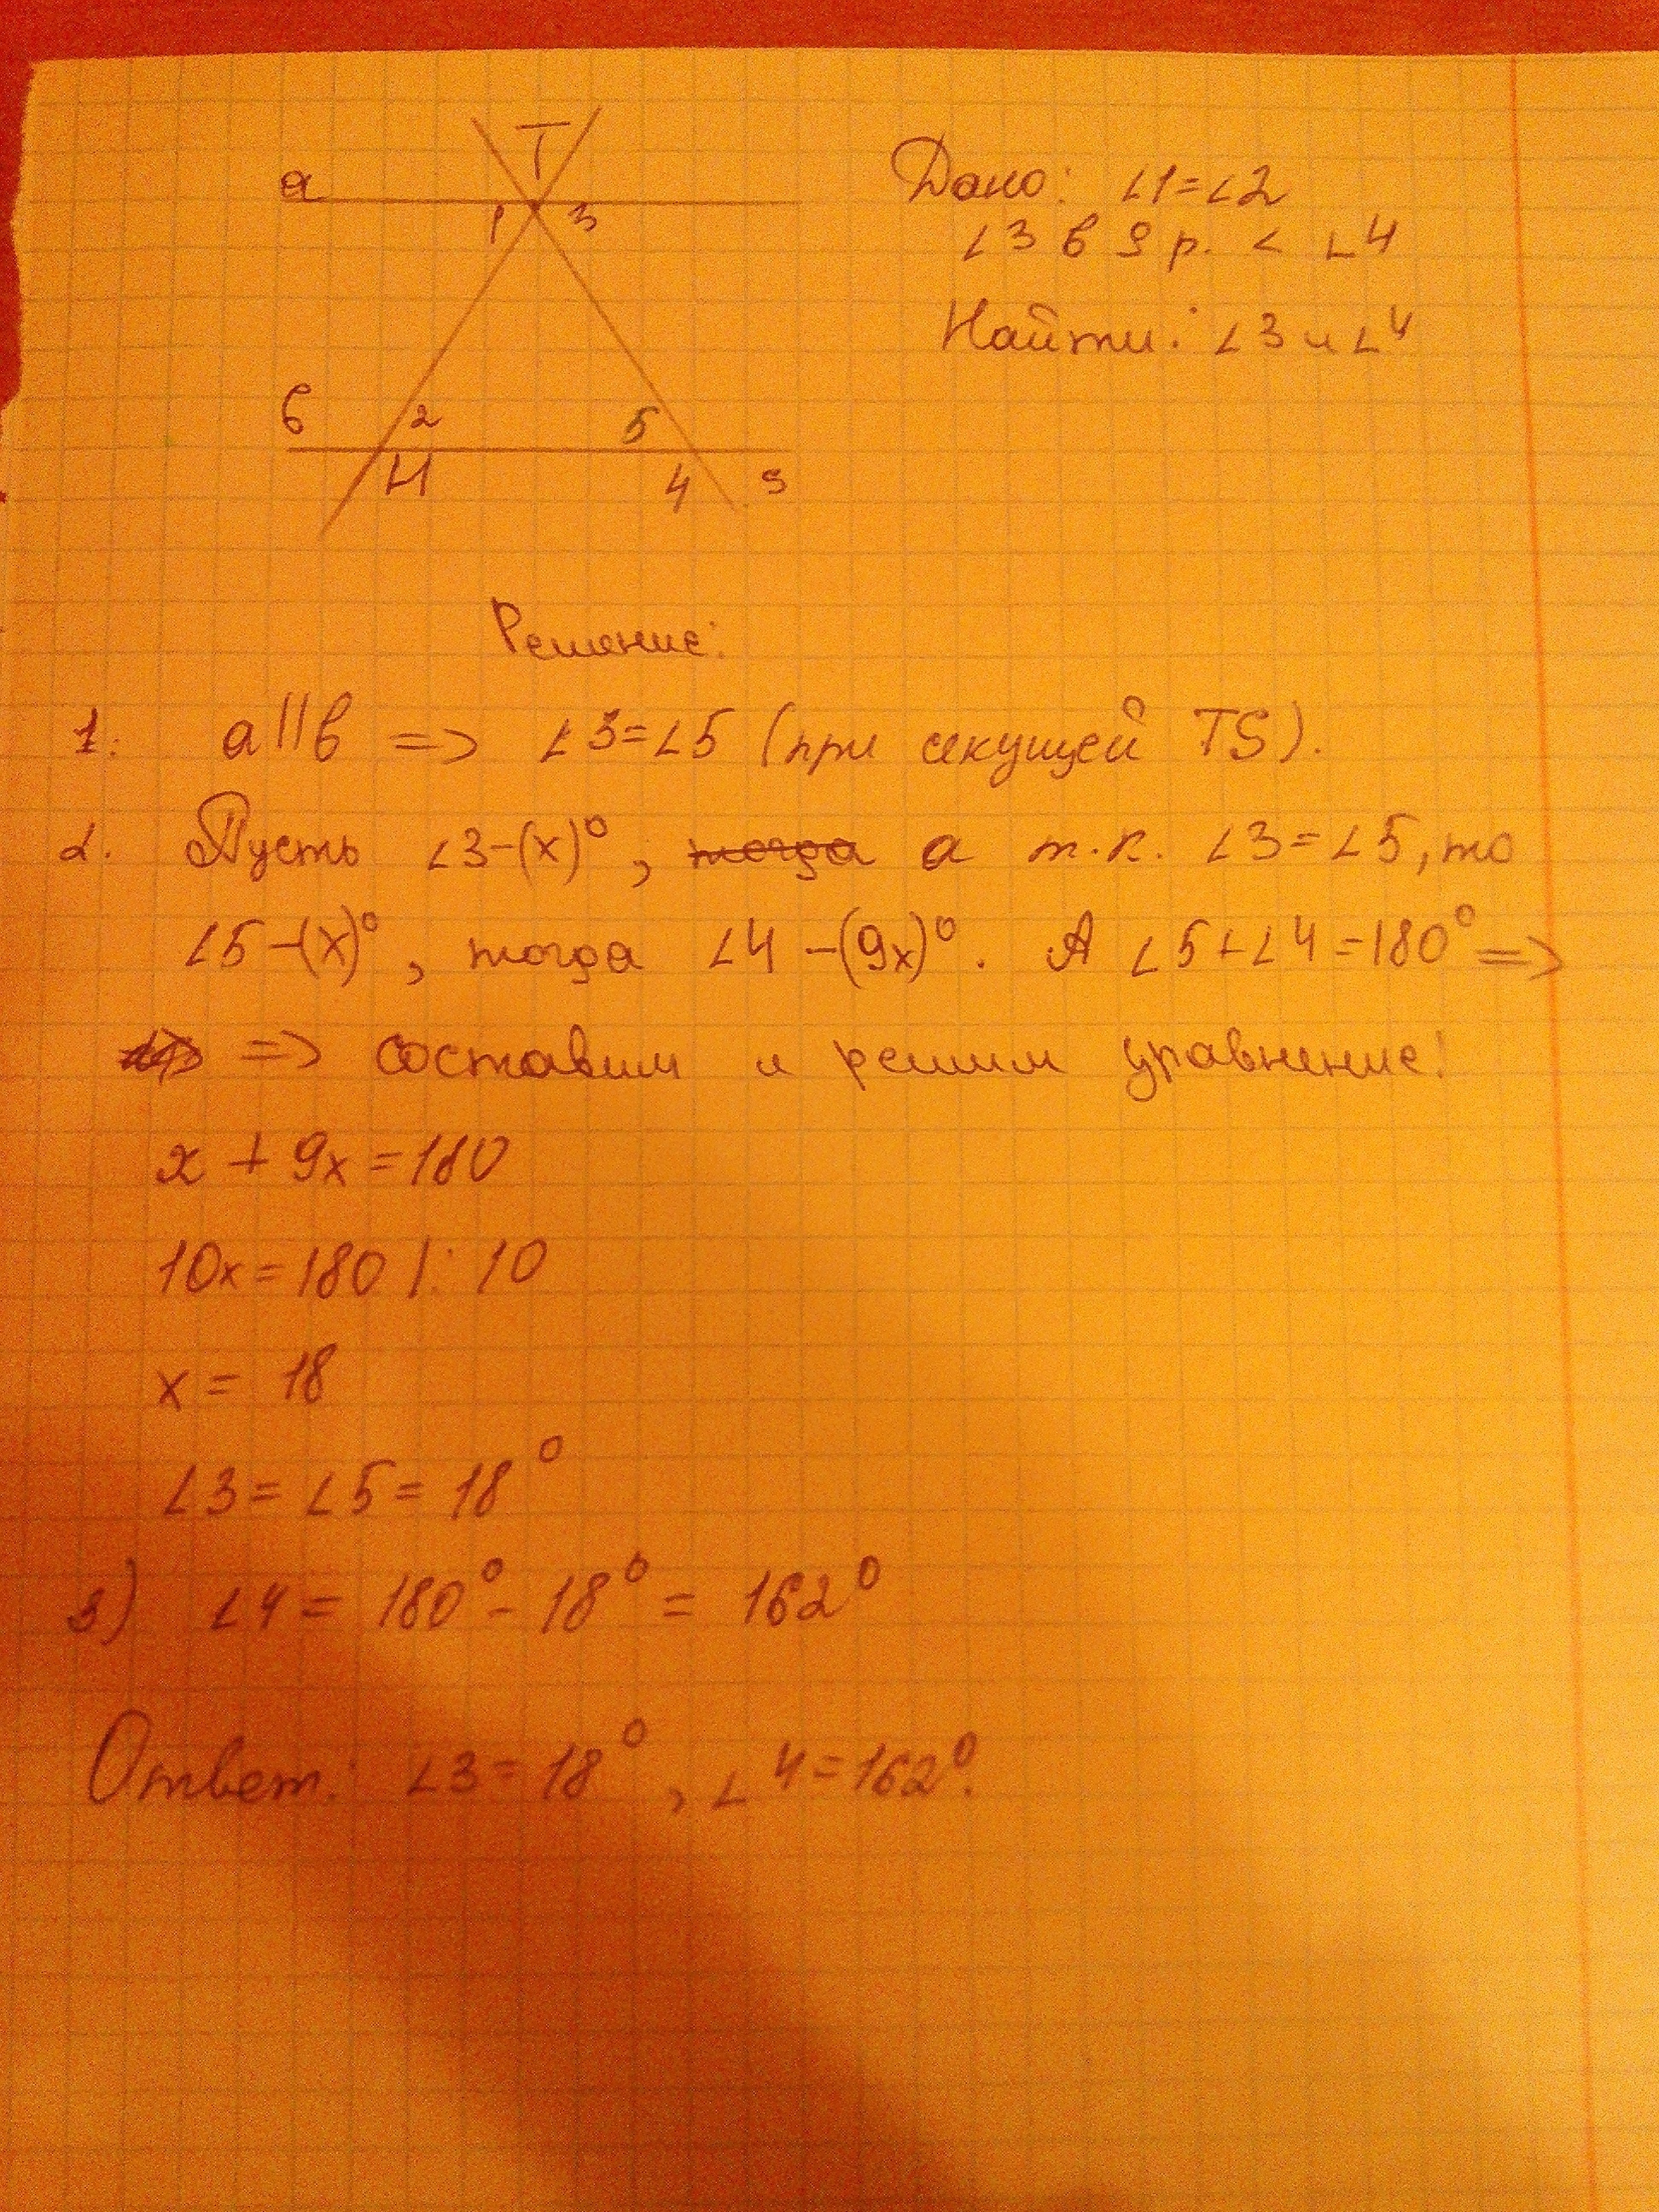 T
a
1 3
Дано: ∠1=∠2
∠3 в 9 р. < ∠4
Найти: ∠3 и ∠4
в 2 5
H 4 S
Решение:
1. a||в => ∠3=∠5 (при секущей TS).
2. Пусть ∠3-(x)°, тогда а т.к. ∠3=∠5, то
∠5-(x)°, тогда ∠4-(9x)°. А ∠5+∠4=180° =>
=> составим и решим уравнение:
x + 9x = 180
10x = 180 |: 10
x = 18
∠3 = ∠5 = 18°
3) ∠4 = 180° - 18° = 162°
Ответ: ∠3 = 18°, ∠4 = 162°.